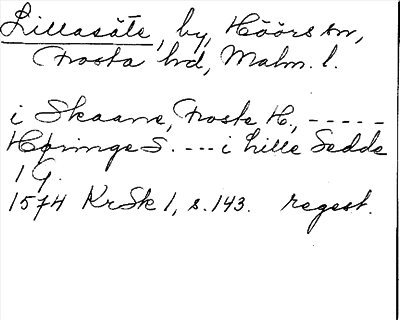 Lillasäte, by, Höörs sn,
Frosta hd, Malm. l.
i Skaane, Froste H., -----
Høringe S. --- i Lille Sedde
1 G.
1574 KrSk 1, s. 143. regest.